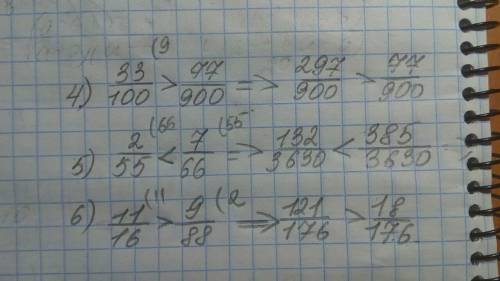 4) 33/100 (9 > 77/900 => 297/900 > 77/900
5) 2/55 (66 < 7/66 (55 => 132/3630 < 385/3630 =>
6) 11/16 (11 > 9/88 (2 => 121/176 > 18/176